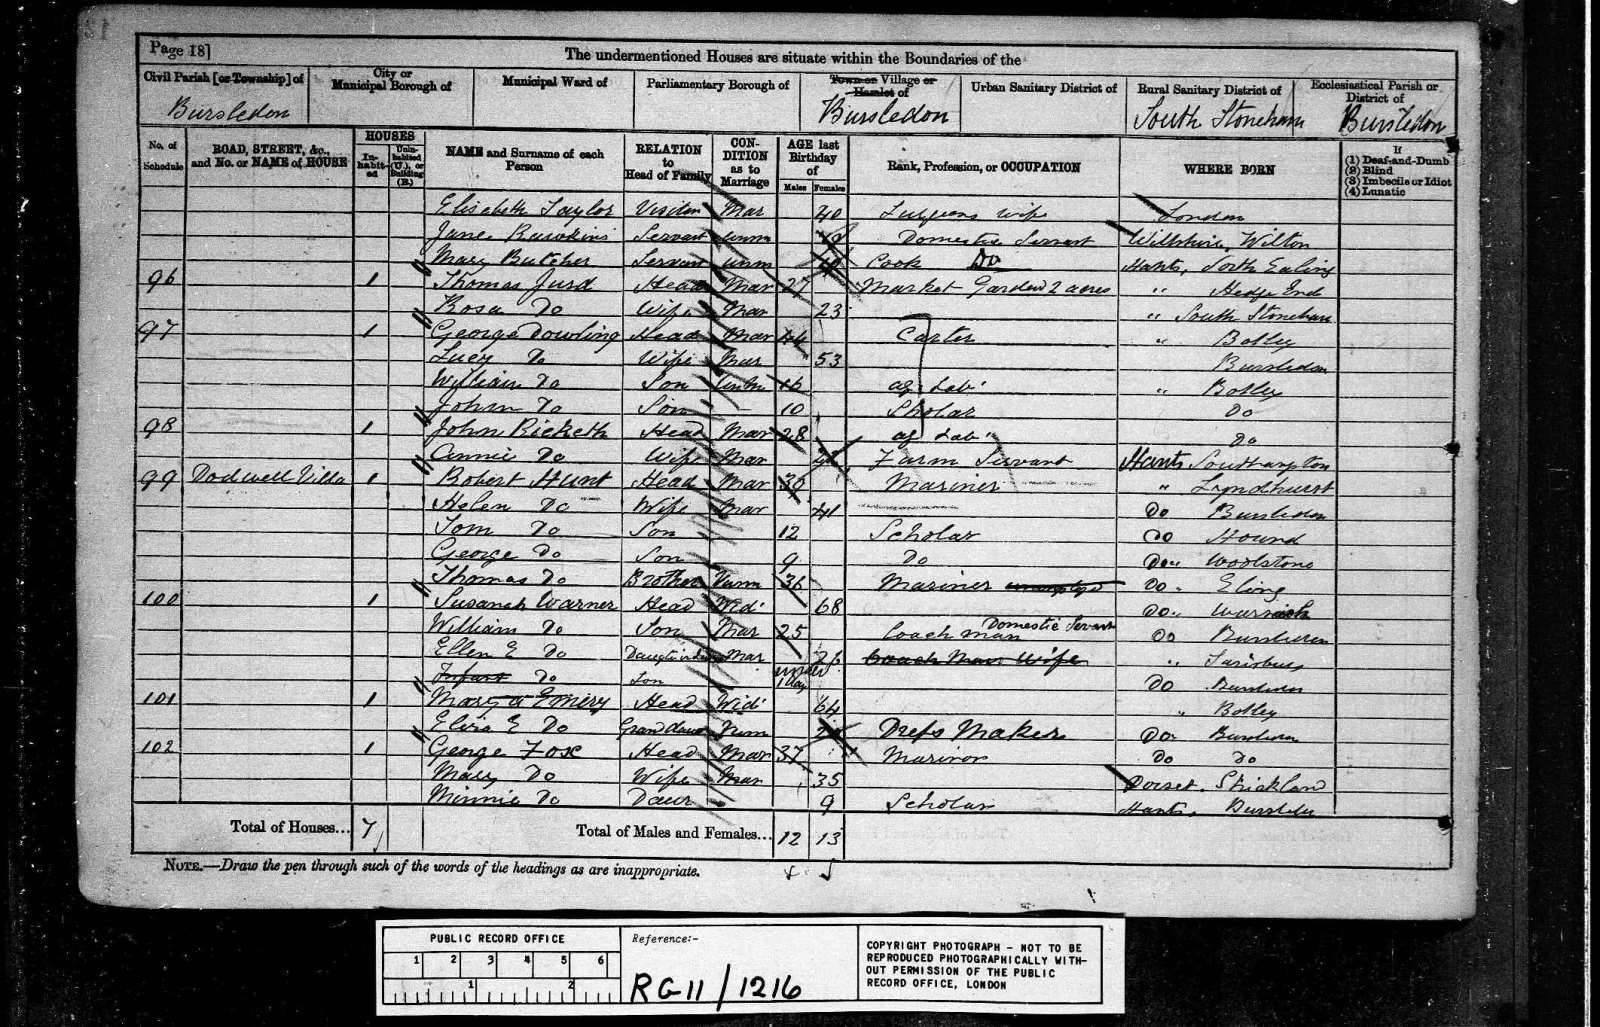 Page 18]
The undermentioned Houses are situate within the Boundaries of the
Civil Parish [or Township] of
City or Municipal Borough of
Municipal Ward of
Parliamentary Borough of
Town or Village or Hamlet of
Urban Sanitary District of
Rural Sanitary District of
Ecclesiastical Parish or District of
Bursledon Bursledon South Stoneham Bursledon
No. of Schedule
ROAD, STREET, &c., and No. or NAME of HOUSE
HOUSES
In-habit-ed
Unin-habited (U.), or Building (B.)
NAME and Surname of each Person
RELATION to Head of Family
CON-DITION as to Marriage
AGE last Birthday of
Males Females
Rank, Profession, or OCCUPATION
WHERE BORN
If
(1) Deaf-and-Dumb
(2) Blind
(3) Imbecile or Idiot
(4) Lunatic
Elisebeth Taylor Visitor Mar 40 wife London
Jane Servant unm Domestic Servant Wiltshire Wilton
Mary Butcher Servant unm Cook Do Hants,
96 1 Thomas Jurd Head Mar 27 Market Garden 2 acres " Hedge End
Rosa Do Wife Mar 23 " South Stoneham
97 1 George Dowling Head Mar 44 Carter " Botley
Lucy Do Wife Mar 53 Bursledon
William Do Son unm 16 ag Lab " Botley
John Do Son - 10 Scholar Do
98 1 John Ricketh Head Mar 28 ag Lab Do
Annie Do Wife Mar Farm Servant Hants Southampton
99 Dodwell Villa 1 Robert Hunt Head Mar 30 Mariner " Lyndhurst
Helen Do Wife Mar 41 Do Bursledon
Tom Do Son 12 Scholar Do Hound
George Do Son 9 Do Do Woolstone
Thomas Do Brother Unm 36 Mariner unemployed Do Eling
100 1 Susanah Warner Head Wid 68 Do Warsash
William Do Son Mar 25 Coachman Domestic Servant Do Bursledon
Ellen E Do Mar 26 Coach Mans Wife "
Infant Do Son under 1 day Do Bursledon
101 1 Mary a Emery Head Wid 64 " Botley
Eliza E Do Unm Dress Maker Do Bursledon
102 1 George Fox Head Mar 37 Marinor Do Do
Mary Do Wife Mar 35 Dorset
Minnie Do Daur 9 Scholar Hants, Bursledon
Total of Houses... 7
Total of Males and Females... 12 13
NOTE.—Draw the pen through such of the words of the headings as are inappropriate.
PUBLIC RECORD OFFICE
1 2 3 4 5 6
1 2
Reference:-
RG11/1216
COPYRIGHT PHOTOGRAPH - NOT TO BE
REPRODUCED PHOTOGRAPHICALLY WITH-
OUT PERMISSION OF THE PUBLIC
RECORD OFFICE, LONDON